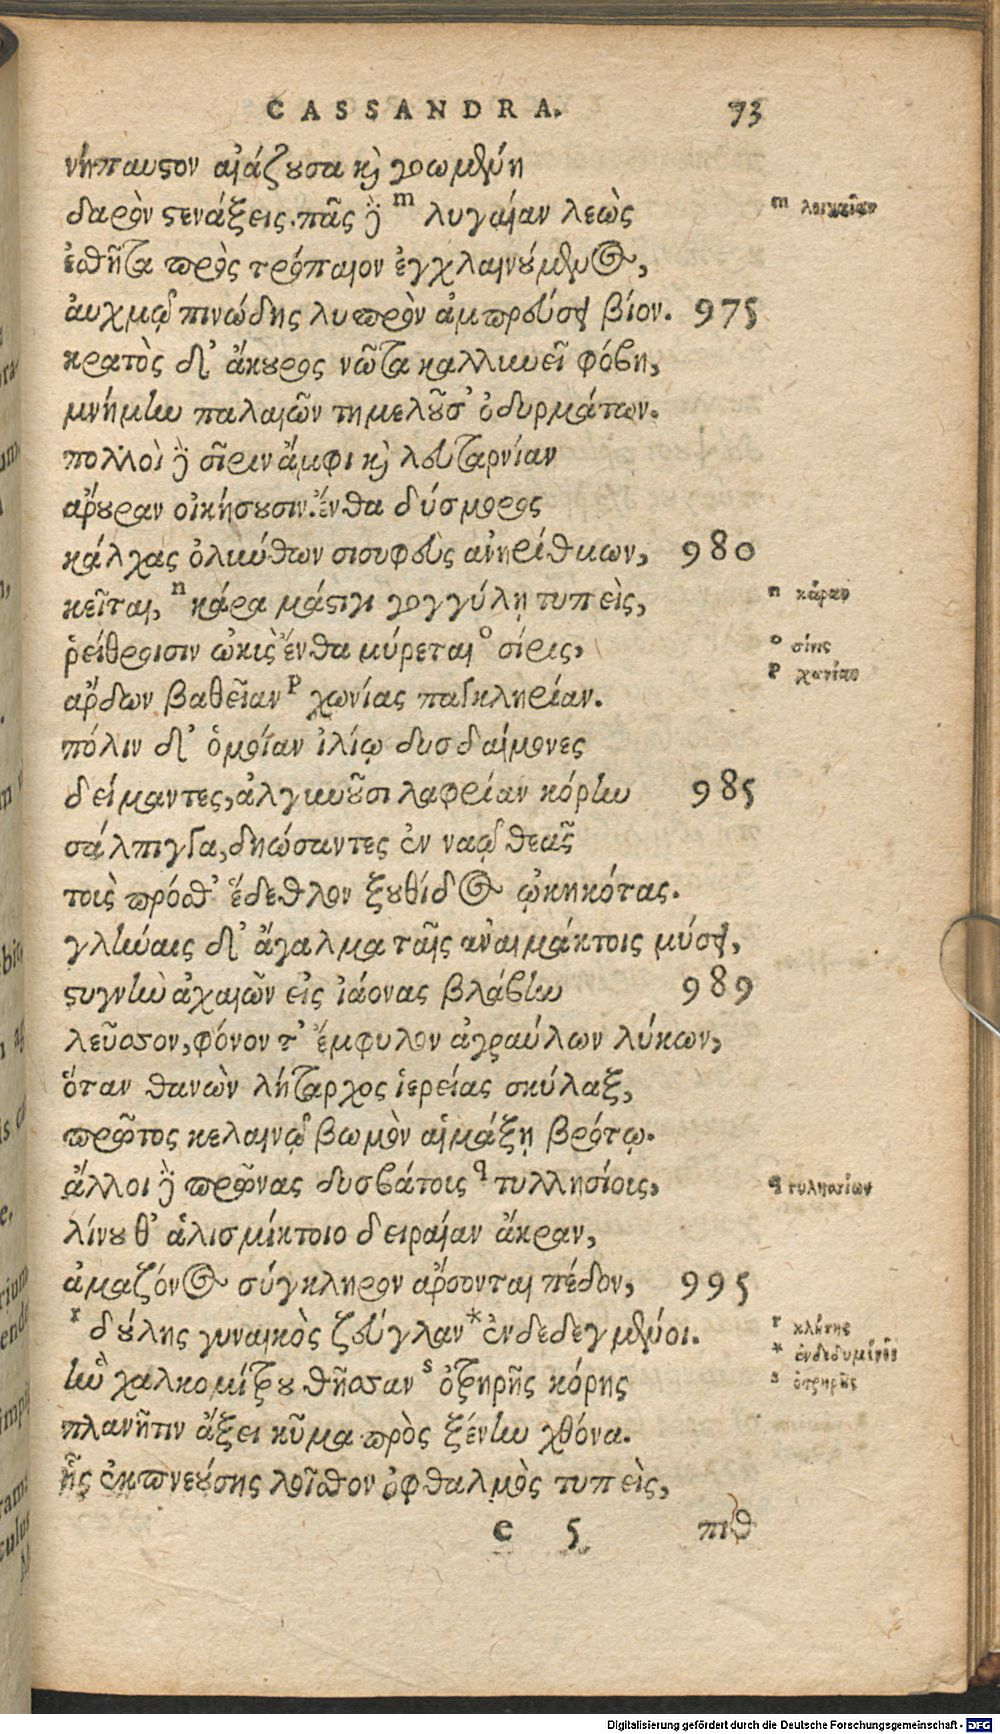 CASSANDRA. 73
νήπαυστον αἰάζουσα καὶ γοωμένη
δαρὸν στενάξεις. πᾶς δὲ m λυγαίαν λεὼς
ἐσθῆτα πρὸς τρόπαιον ἐγχλαινούμενος,
αὐχμῷ πινώδης λυπρὸν ἀμπρεύσει βίον. 975
κρατὸς δ' ἄκουρος νῶτα καλλυνεῖ φόβη,
μνήμην παλαιῶν τημελοῦσ' ὀδυρμάτων.
πολλοὶ δὲ σῖριν ἄμφι καὶ λευταρνίαν
ἄρουραν οἰκήσουσιν. ἔνθα δύσμορος
κάλχας ὀλκύθων σισυφεὺς ἀνηρίθμων, 980
κεῖται, n κάρα μάστιγι γογγύλῃ τυπεὶς,
ῥείθροισιν ὠκὺς ἔνθα μύρεται o σίρις,
ἄρδων βαθεῖαν p χωνίας παγκληρίαν.
πόλιν δ' ὁμοίαν ἰλίῳ δυσδαίμονες
δείμαντες, ἀλγυνοῦσι λαφρίαν κόρην 985
σάλπιγγα, δηώσαντες ἐν ναῷ θεᾶς
τοὺς πρόσθ' ἔδεθλον ξουθίδος ᾠκηκότας.
γλήναις δ' ἄγαλμα ταῖς ἀναιμάκτοις μύσει,
στυγνὴν ἀχαιῶν εἰς ἰάονας βλάβην 989
λεῦσσον, φόνον τ' ἔμφυλον ἀγραύλων λύκων,
ὅταν θανὼν λήταρχος ἱερείας σκύλαξ,
πρῶτος κελαινῷ βωμὸν αἱμάξῃ βρότῳ.
ἄλλοι δὲ πρῶνας δυσβάτους q τυλλησίους,
λίνου θ' ἁλισμήκτοιο δειραίαν ἄκραν,
ἀμαζόνος σύγκληρον ἄρσονται πέδον, 995
r δούλης γυναικὸς ζεύγλαν * ἐνδεδεγμένοι.
ἣν χαλκομίτρου θῆσσαν s ὀτρηρῆς κόρης
πλανῆτιν ἄξει κῦμα πρὸς ξένην χθόνα.
ἧς ἐκπνεούσης λοῖσθον ὀφθαλμὸς τυπεὶς,
e 5 πιθ
m λοιγαῖαν
n κάραν
o σίνις
p χωνίαν
q τυλησσίων
r κλήτης
* ἐνδεδυμένοι
s ὀτρηρῆς
Digitalisierung gefördert durch die Deutsche Forschungsgemeinschaft - DFG